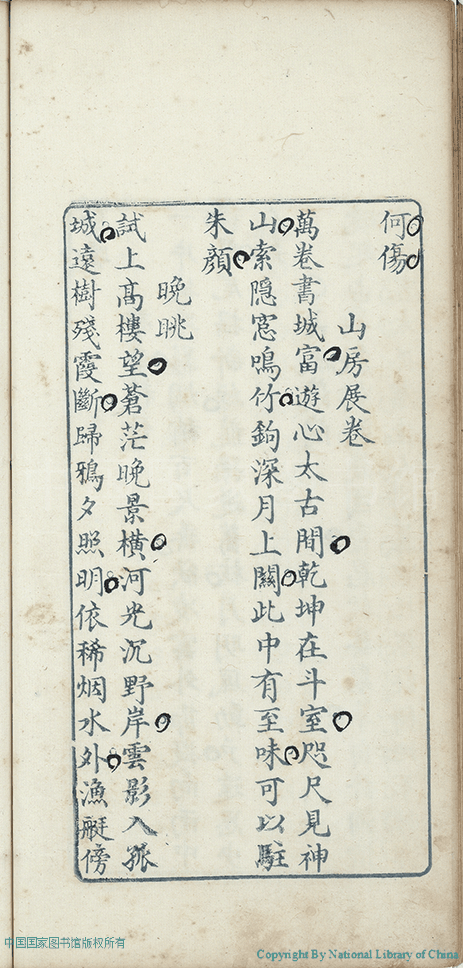 何傷
山房展卷
萬卷書城富遊心太古間乾坤在斗室咫尺見神
山索隱窓鳴竹鉤深月上關此中有至味可以駐
朱顏
晚眺
試上高樓望蒼茫晚景橫河光沉野岸雲影入孤
城遠樹殘霞斷歸鴉夕照明依稀烟水外漁艇傍
中国国家图书馆版权所有
Copyright By National Library of China